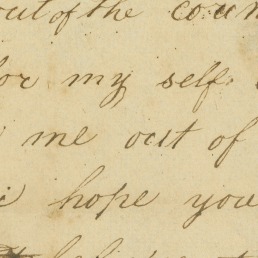 out of the coun
for my self
me out of
hope you